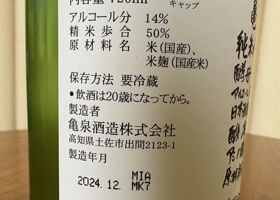 内容量 720ml
キャップ
アルコール分 14%
精米歩合 50%
原材料名 米(国産)、
米麹(国産米)
保存方法 要冷蔵
•飲酒は20歳になってから。
製造者
亀泉酒造株式会社
高知県土佐市出間2123-1
製造年月
2024.12. MIA
MK7
亀
純米
酵母
アルコール
日本酒
酸度
アミノ酸
原材料